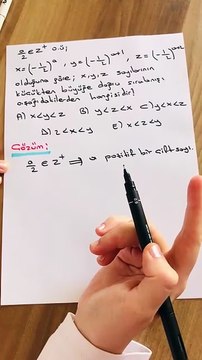 a/2 ∈ Z⁺ o.ü;
x = (-1/2)ᵃ , y = (-1/2)ᵃ⁺¹ , z = (-1/2)ᵃ⁺²
olduğuna göre; x,y,z sayılarının
küçükten büyüğe doğru sıralanışı
aşağıdakilerden hangisidir?
A) x<y<z B) y<z<x C) y<x<z
D) z<x<y E) x<z<y
Çözüm:
a/2 ∈ Z⁺ ⟹ a pozitif bir çift sayı.